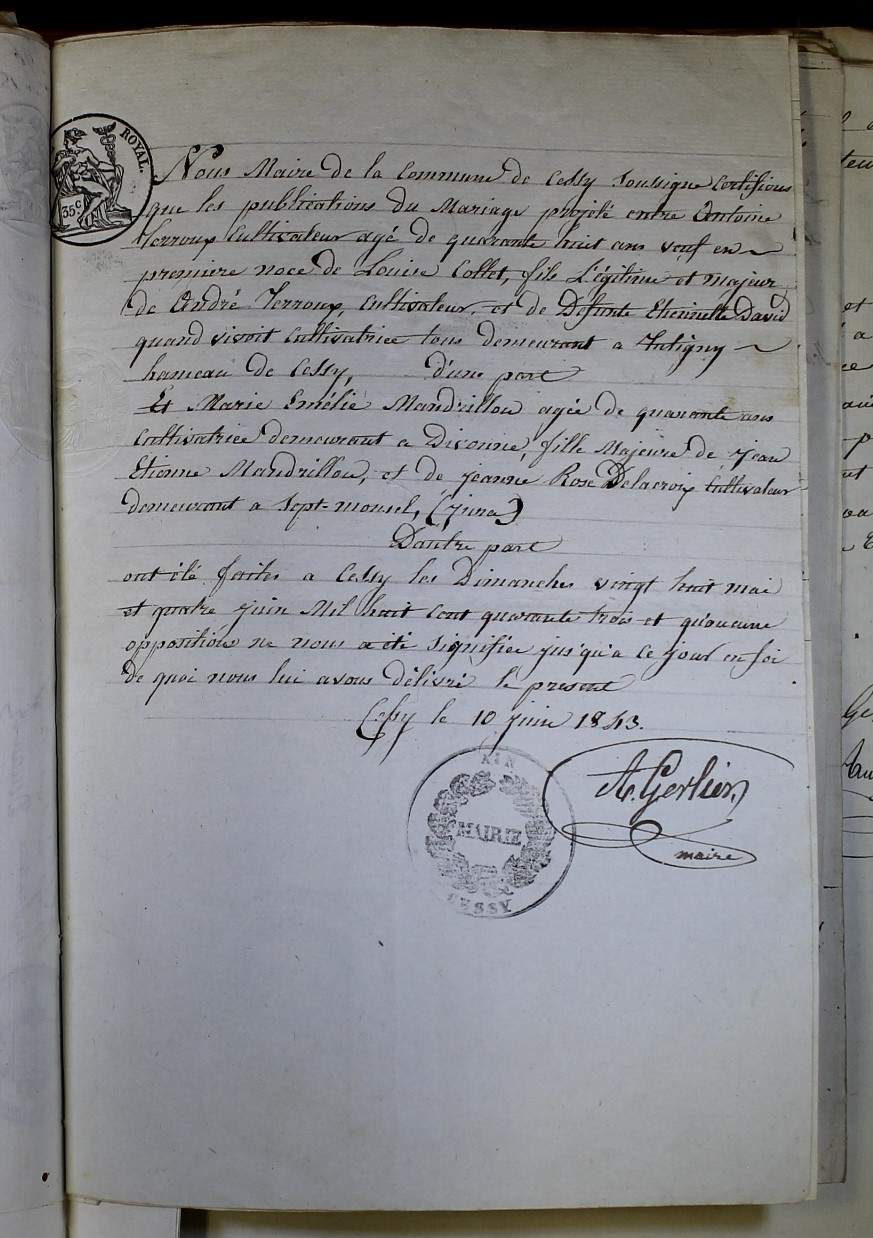 ROYAL.
35 c
Nous Maire de la Commune de Cessy soussigné Certifions
que les publications du Mariage projeté entre Antoine
Verroux Cultivateur agé de quarante huit ans veuf en
premiere noce de Louise Collet, fils Légitime et majeur
de André Verroux, Cultivateur, et de Defunte Etiennette David
quand vivoit Cultivatrice tous demeurant a
hameau de Cessy, d'une part
Et Marie Emélie Mandrillon agée de quarante ans
Cultivatrice demeurant a Divonne, fille Majeure de jean
Etienne Mandrillon, et de jeanne Rose Delacroix Cultivateur
demeurant a Sept-moncel, (jura)
Dautre part
ont été faites a Cessy les Dimanches vingt huit mai
et quatre juin Mil huit cent quarante trois et qu'aucune
opposition ne nous a été signifiée jusqu'a ce jour en foi
de quoi nous lui avons délivré le present
Cessy le 10 juin 1843.
A. Gerlier
maire
AIN
MAIRIE
CESSY